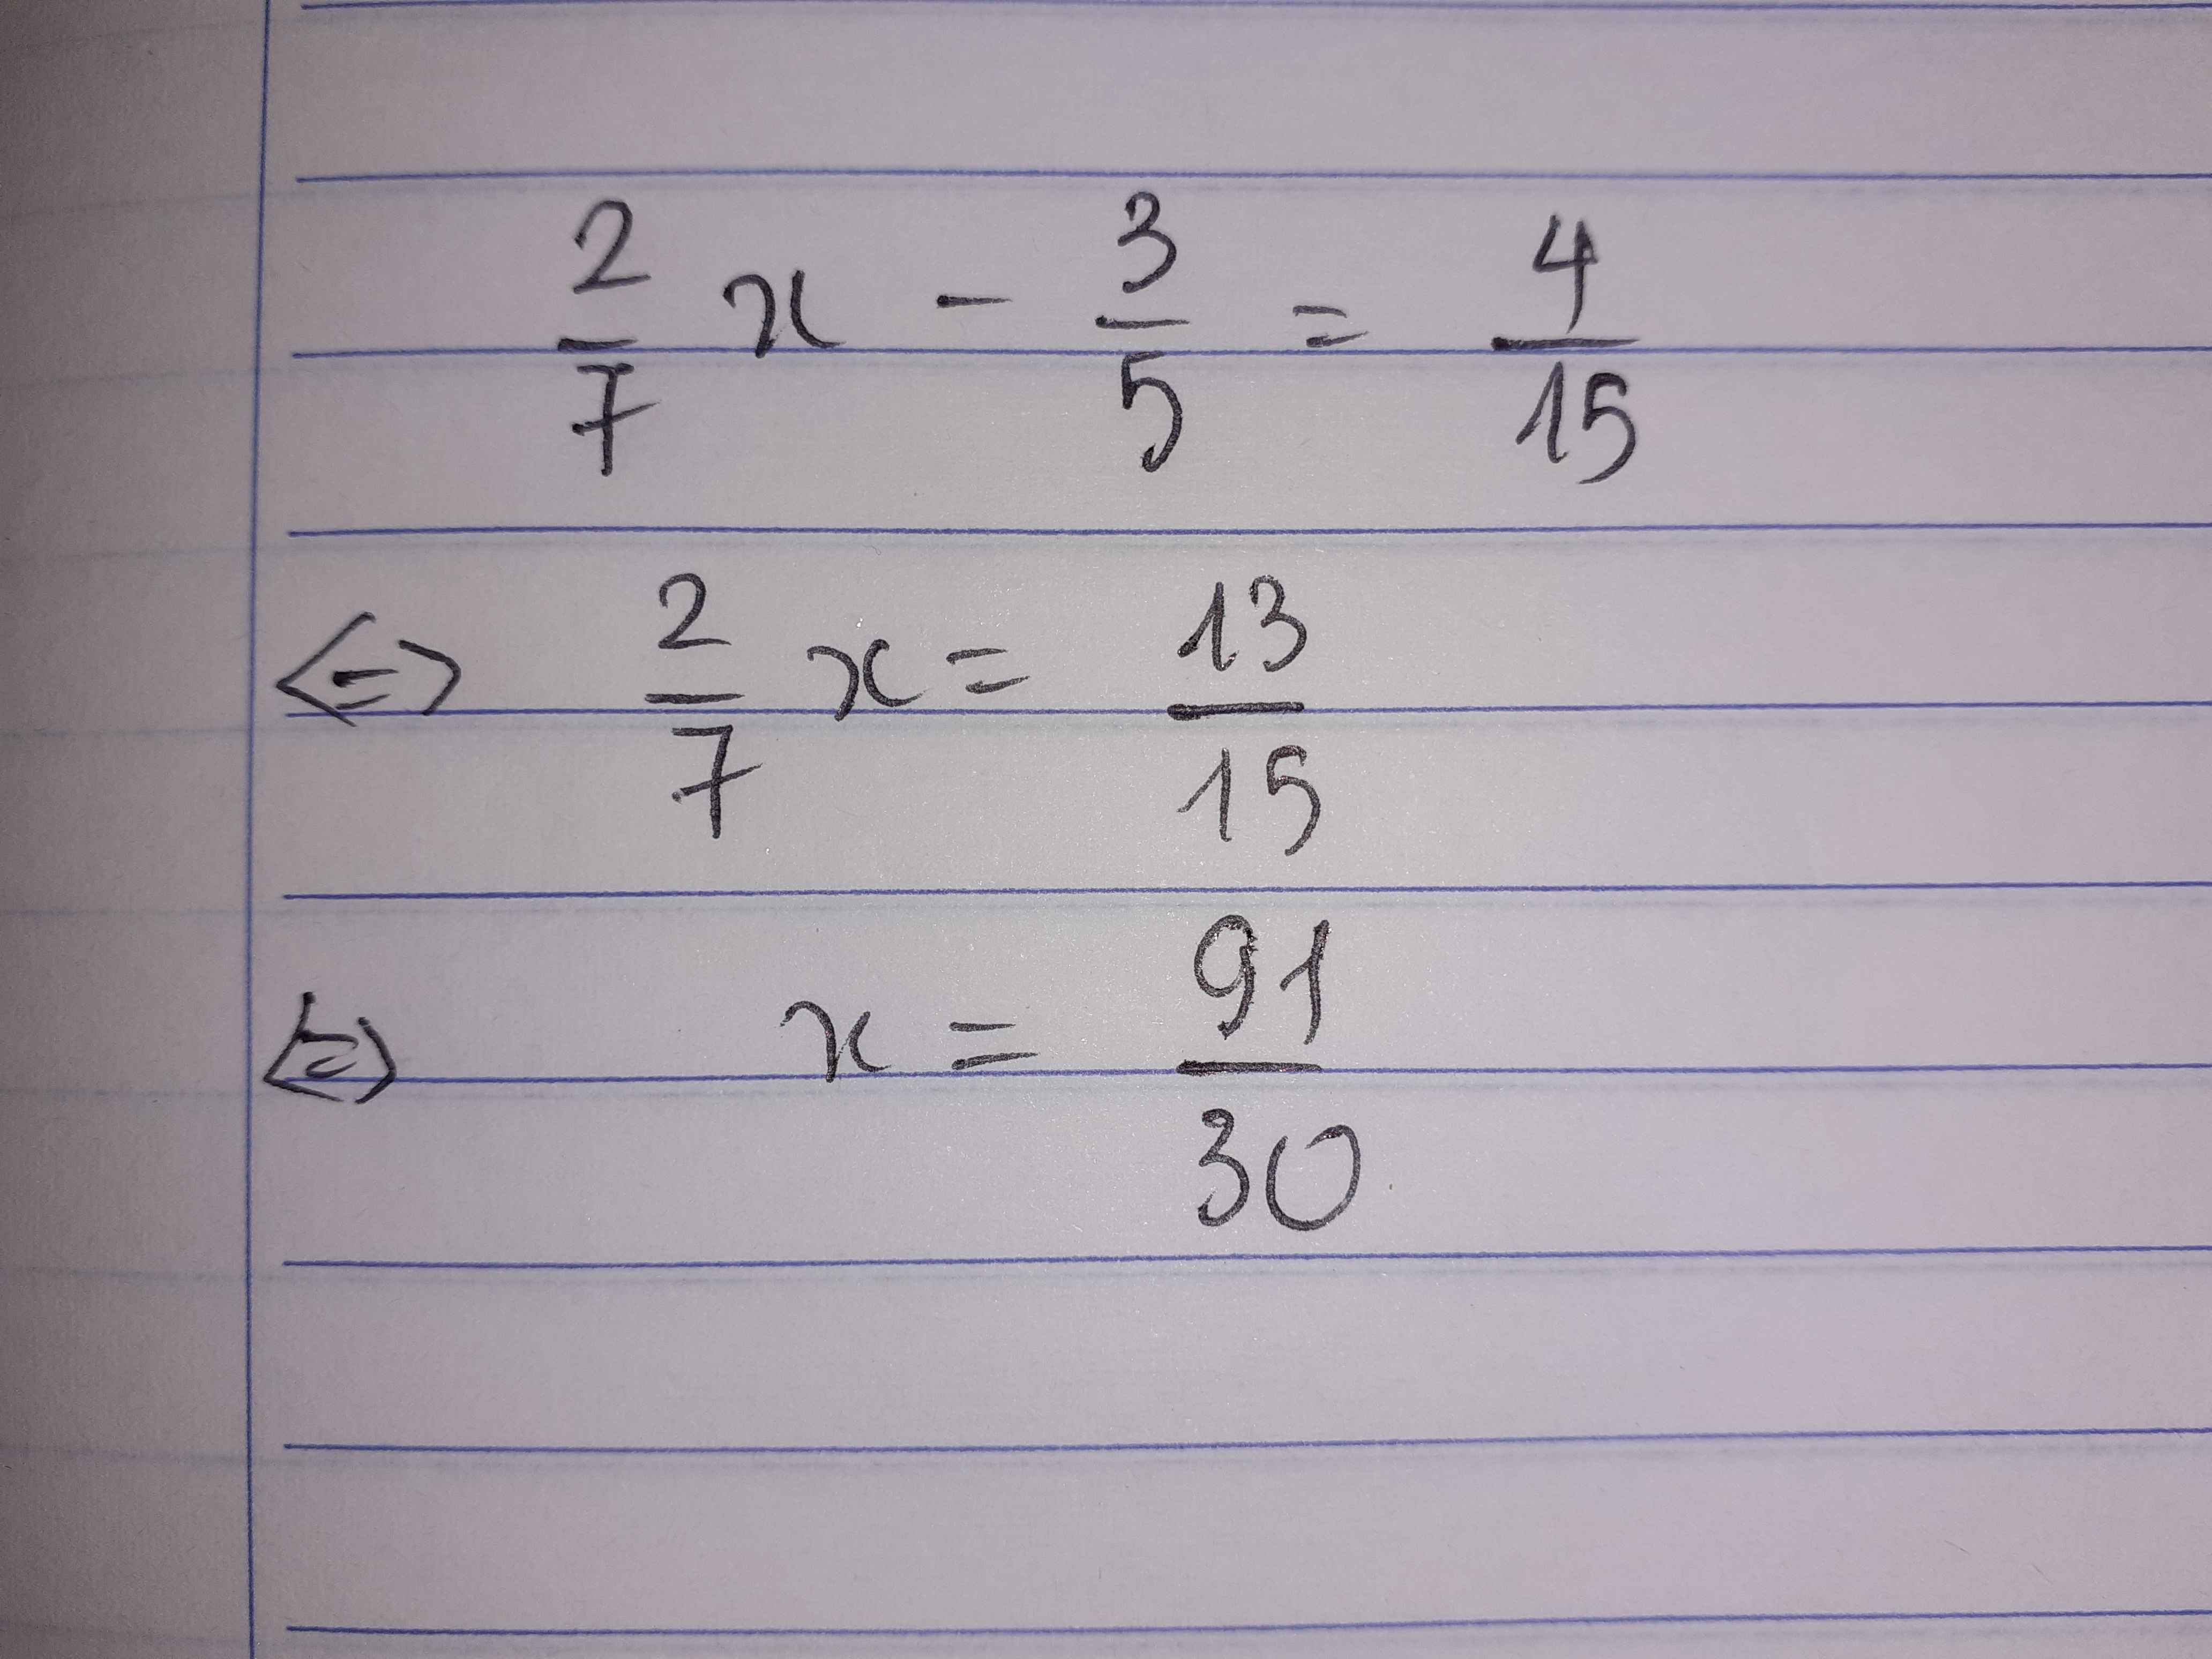 2/7 x - 3/5 = 4/15
<=> 2/7 x = 13/15
<=> x = 91/30